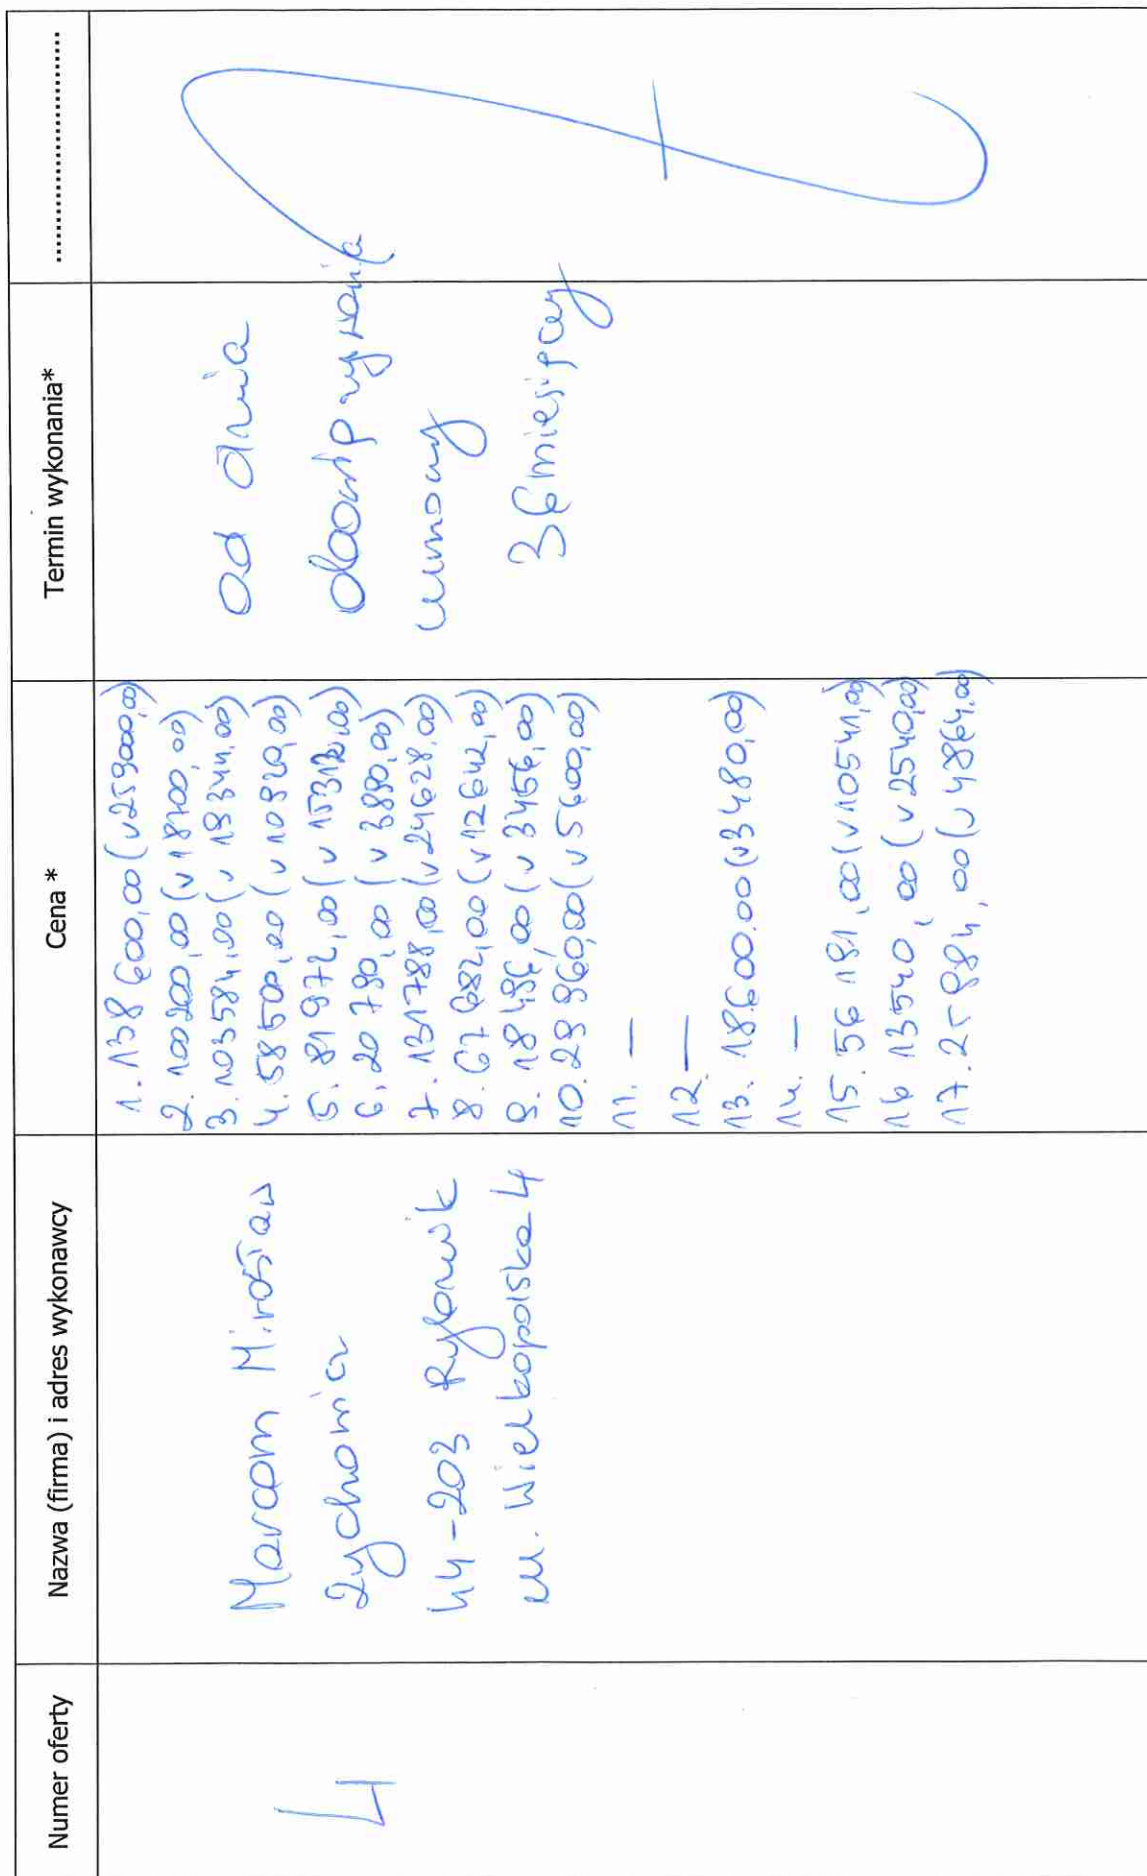 Numer oferty
Nazwa (firma) i adres wykonawcy
Cena *
Termin wykonania*
................................
4
Marcom Mirosław
Zychowicz
44-203 Rybnik
ul. Wielkopolska 4
1. 138 600,00 (v 259000,00)
2. 100200,00 (v 18700,00)
3. 103584,00 (v 19344,00)
4. 58500,00 (v 10920,00)
5. 81972,00 (v
6. 20 790,00 (v 3880,00)
7. 131788,00 (v 24628,00)
8. 67682,00 (v 12642,00)
9. 18496,00 (v 3456,00)
10. 29960,00 (v 5600,00)
11. —
12. —
13. 18600.00 (v 3480,00)
14. —
15. 56 181,00 (v 10541,00)
16 13540,00 (v 2540,00)
17. 25984,00 (v 4864,00)
od dnia
umowy
36 miesięcy